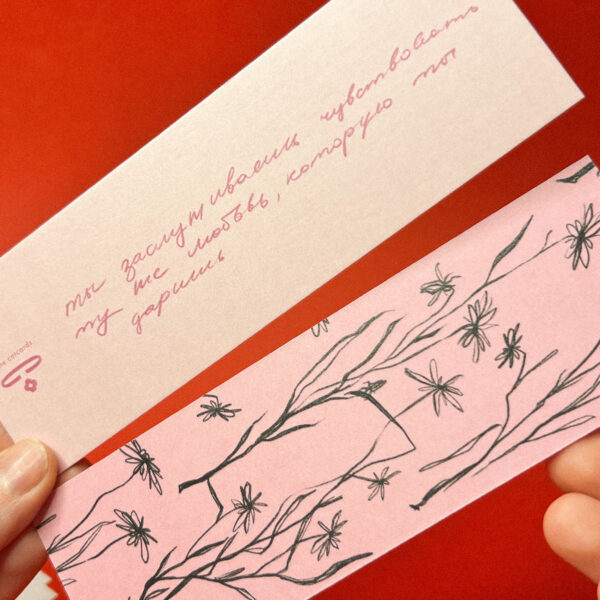 ты заслуживаешь чувствовать
ту же любовь, которую ты
даришь
catcards